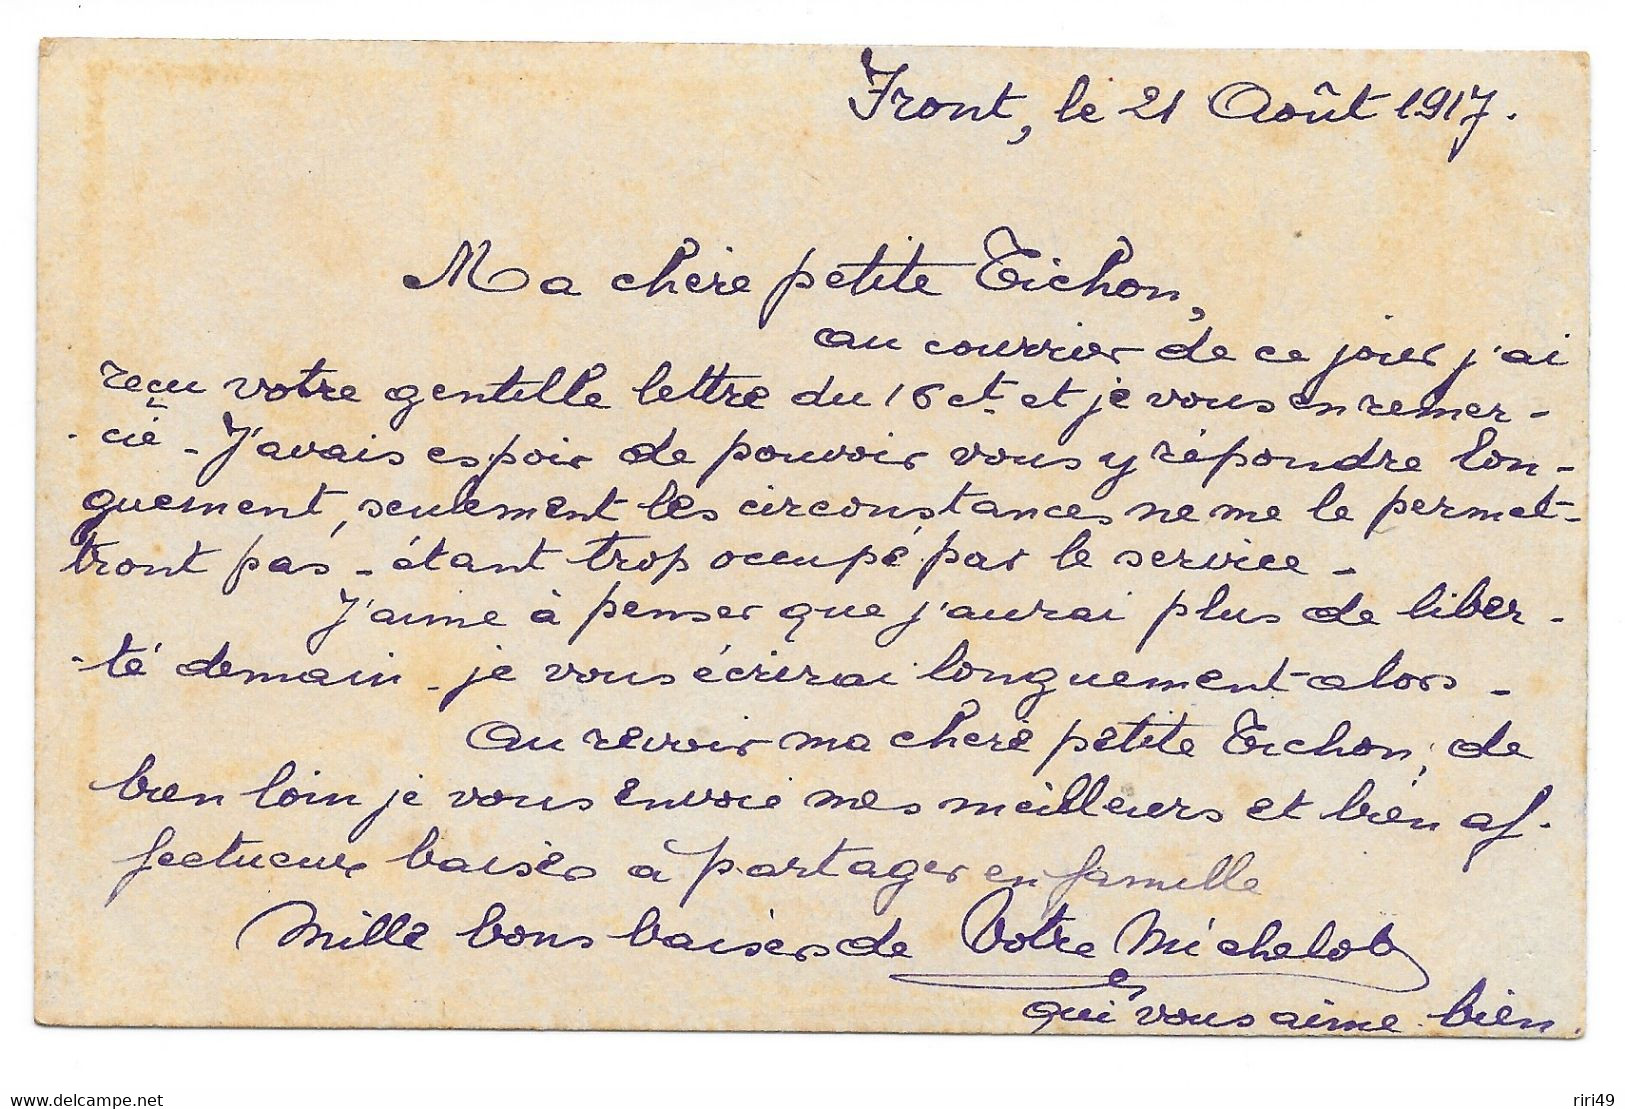 Front, le 21 Août 1917.
Ma chère petite Tichon,
au courrier de ce jour j'ai
reçu votre gentille lettre du 16 ct et je vous en remer-
- cie - J'avais espoir de pouvoir vous y répondre lon-
guement, seulement les circonstances ne me le permet-
tront pas - étant trop occupé par le service -
J'aime à penser que j'aurai plus de liber-
- té demain - je vous écrirai longuement alors -
Au revoir ma chère petite Tichon, de
bien loin je vous envoie mes meilleurs et bien af-
fectueux baisers à partager en famille
Mille bons baisers de Votre Michelot
qui vous aime bien.
delcampe.net
riri49